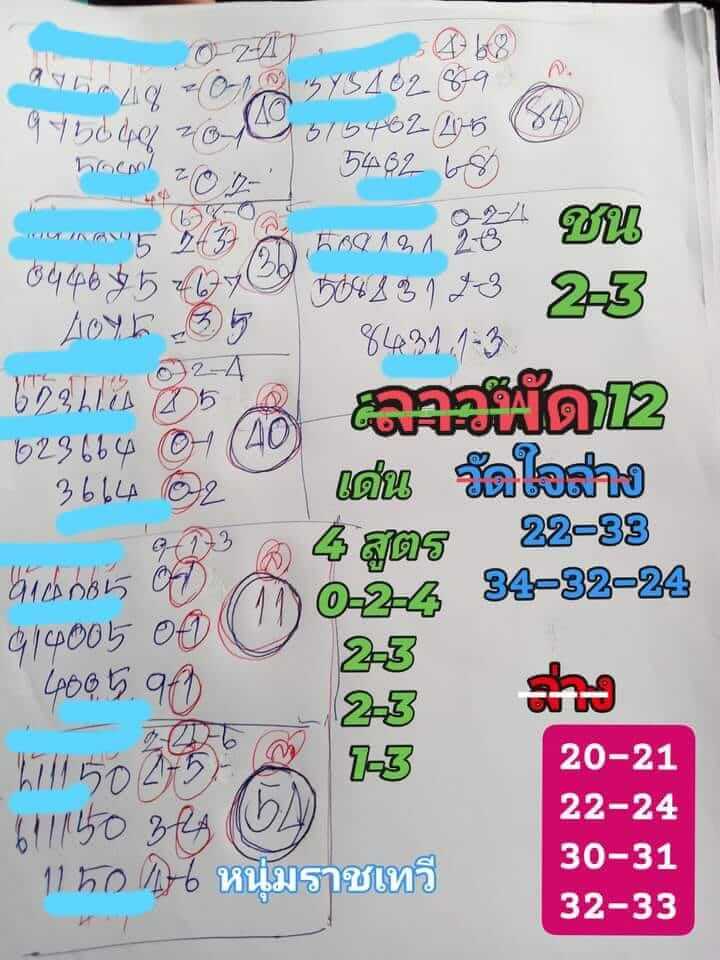 0-2-4
=0-1 ล.
975048 =0-1 40
=0 2-
6-8-0 ล.
2-3 36
094075 =6-7
4075 = 3.5
0-2-4
623664 4 5 ล
623664 0-1 40
3664 0-2
9-1-3
914005 0-1 ล
914005 0-1 11
4005 9-1
2-4-6
611150 4-5- ล
611150 3-4 54
1150 4-6
4-6-8
375402 8-9 ล.
375402 4-5 84
5402 6-8
0-2-4
508431 2-3
508431 2-3
8431 1-3
ชน
2-3
ลาวพัฒ112
เด่น
4 สูตร
0-2-4
2-3
2-3
1-3
วัดใจล่าง
22-33
34-32-24
ล่าง
20-21
22-24
30-31
32-33
หนุ่มราชเทวี